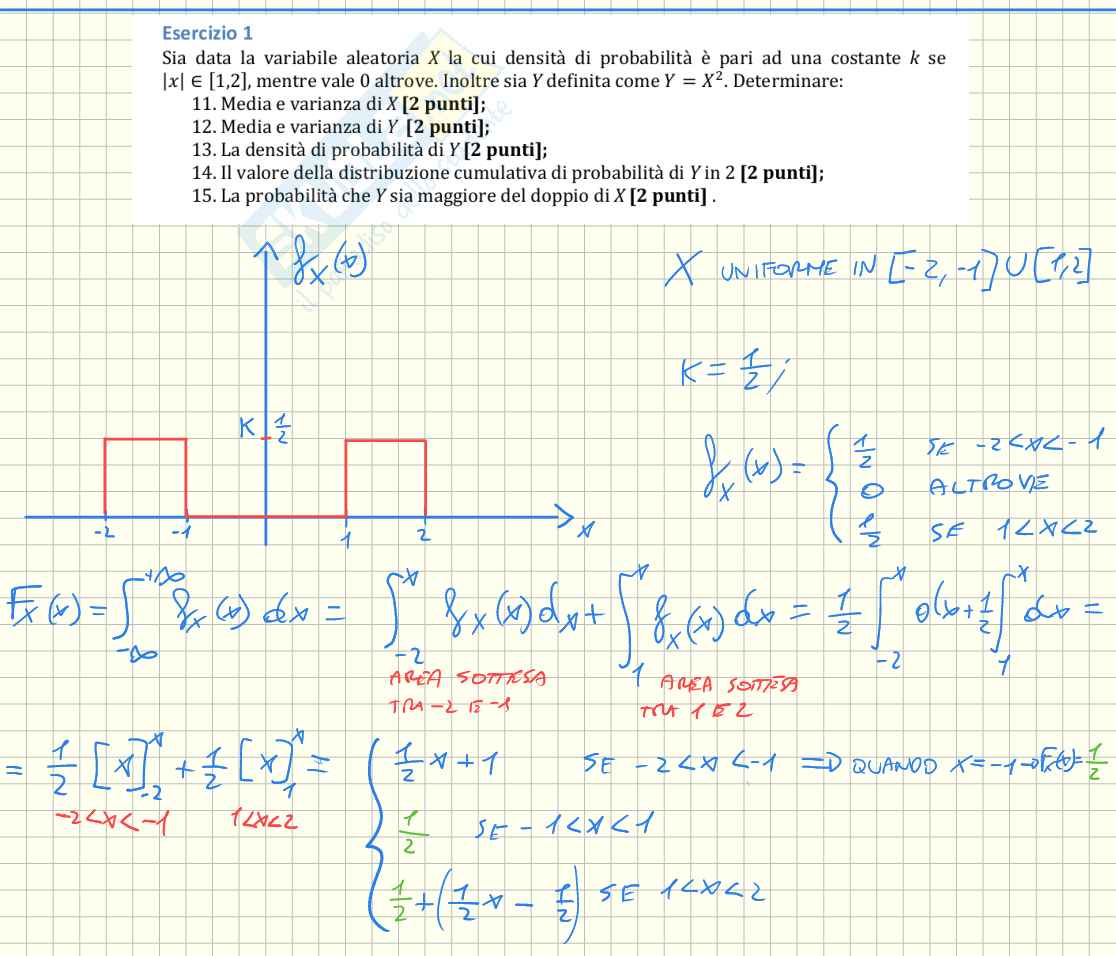 Esercizio 1
Sia data la variabile aleatoria X la cui densità di probabilità è pari ad una costante k se
|x| ∈ [1,2], mentre vale 0 altrove. Inoltre sia Y definita come Y = X². Determinare:
11. Media e varianza di X [2 punti];
12. Media e varianza di Y [2 punti];
13. La densità di probabilità di Y [2 punti];
14. Il valore della distribuzione cumulativa di probabilità di Y in 2 [2 punti];
15. La probabilità che Y sia maggiore del doppio di X [2 punti] .
f_X(x)
X UNIFORME IN [-2, -1] ∪ [1,2]
K = 1/2 ;
K 1/2
-2 -1 1 2 x
f_X(x) = { 1/2 SE -2<x<-1
0 ALTROVE
1/2 SE 1<x<2
F_X(x) = ∫_{-∞}^{+∞} f_X(x) dx = ∫_{-2}^{x} f_X(x) dx + ∫_{1}^{x} f_X(x) dx = 1/2 ∫_{-2}^{x} dx + 1/2 ∫_{1}^{x} dx =
AREA SOTTESA AREA SOTTESA
TRA -2 E -1 TRA 1 E 2
= 1/2 [x]_{-2}^{x} + 1/2 [x]_{1}^{x} = { 1/2 x + 1 SE -2<x<-1 ⇒ QUANDO X=-1→F_X(x)=1/2
-2<x<-1 1<x<2
1/2 SE -1<x<1
1/2 + (1/2 x - 1/2) SE 1<x<2